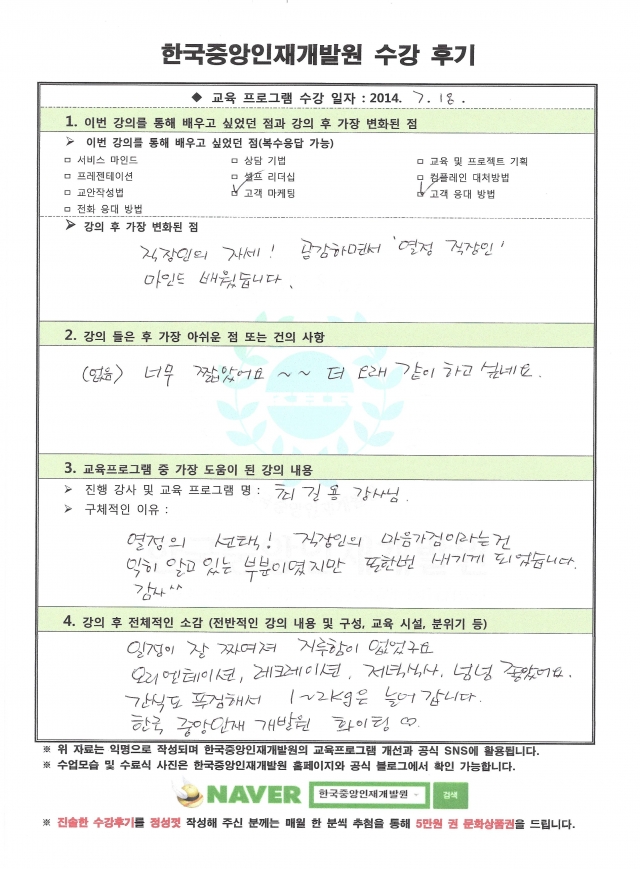 한국중앙인재개발원 수강 후기
◆ 교육 프로그램 수강 일자 : 2014. 7. 18.
1. 이번 강의를 통해 배우고 싶었던 점과 강의 후 가장 변화된 점
➢ 이번 강의를 통해 배우고 싶었던 점(복수응답 가능)
□ 서비스 마인드 □ 상담 기법 □ 교육 및 프로젝트 기획
□ 프레젠테이션 □ 셀프 리더십 □ 컴플레인 대처방법
□ 교안작성법 ☑ 고객 마케팅 ☑ 고객 응대 방법
□ 전화 응대 방법
➢ 강의 후 가장 변화된 점
직장인의 자세! 공감하면서 '열정 직장인'
마인드 배웠습니다.
2. 강의 들은 후 가장 아쉬운 점 또는 건의 사항
(없음) 너무 짧았어요 ~ ~ 더 오래 같이 하고 싶네요.
3. 교육프로그램 중 가장 도움이 된 강의 내용
➢ 진행 강사 및 교육 프로그램 명 : 최길용 강사님.
➢ 구체적인 이유 :
열정의 선택! 직장인의 마음가짐이라는건
익히 알고 있는 부분이였지만 또한번 새기게 되었습니다.
감사^^
4. 강의 후 전체적인 소감 (전반적인 강의 내용 및 구성, 교육 시설, 분위기 등)
일정이 잘 짜여져 지루함이 없었구요
오리엔테이션, 레크레이션, 저녁식사, 넘넘 좋았어요.
간식도 푸짐해서 1~2kg은 늘어 갑니다.
한국 중앙인재 개발원 화이팅 ∞.
※ 위 자료는 익명으로 작성되며 한국중앙인재개발원의 교육프로그램 개선과 공식 SNS에 활용됩니다.
※ 수업모습 및 수료식 사진은 한국중앙인재개발원 홈페이지와 공식 블로그에서 확인 가능합니다.
NAVER 한국중앙인재개발원 검색
※ 진솔한 수강후기를 정성껏 작성해 주신 분께는 매월 한 분씩 추첨을 통해 5만원 권 문화상품권을 드립니다.